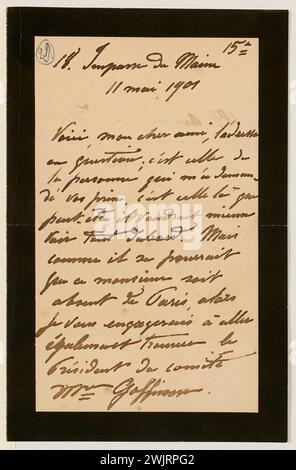 18. Impasse du Maine 15e
11 mai 1901
Voici, mon cher ami, l'adresse
en question; c'est celle de
la personne qui m'a demandé
de vos prix, c'est celle là que
peut-être il vaudrait mieux
voir tout d'abord. Mais
comme il se pourrait
que ce monsieur soit
absent de Paris, alors
je vous engagerais à aller
également trouver le
Président du comité
alamy
Image ID: 2WJRPG2
www.alamy.com